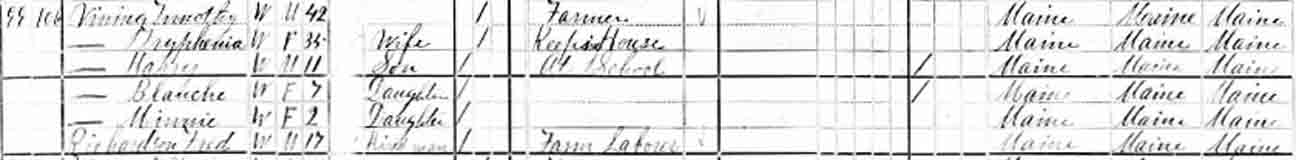 99 106 Vining Timothy W M 42 / Farmer Maine Maine Maine
— Tryphenia W F 35 Wife / Keeps House Maine Maine Maine
— W M 11 Son / At School / Maine Maine Maine
— Blanche W F 7 Daughter / / Maine Maine Maine
— Minnie W F 2 Daughter / Maine Maine Maine
Richardson Fred W M 17 / Farm Laborer Maine Maine Maine